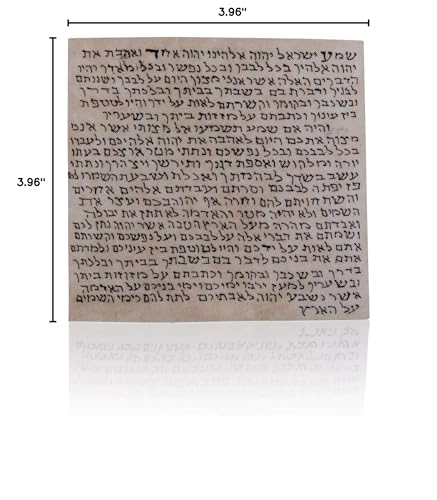 3.96"
3.96"
שמע ישראל יהוה אלהינו יהוה אחד ואהבת את
יהוה אלהיך בכל לבבך ובכל נפשך ובכל מאדך והיו
הדברים האלה אשר אנכי מצוך היום על לבבך ושננתם
לבניך ודברת בם בשבתך בביתך ובלכתך בדרך
ובשכבך ובקומך וקשרתם לאות על ידך והיו לטטפת
בין עיניך וכתבתם על מזזות ביתך ובשעריך
והיה אם שמע תשמעו אל מצותי אשר אנכי
מצוה אתכם היום לאהבה את יהוה אלהיכם ולעבדו
בכל לבבכם ובכל נפשכם ונתתי מטר ארצכם בעתו
יורה ומלקוש ואספת דגנך ותירשך ויצהרך ונתתי
עשב בשדך לבהמתך ואכלת ושבעת השמרו לכם
פן יפתה לבבכם וסרתם ועבדתם אלהים אחרים
והשתחויתם להם וחרה אף יהוה בכם ועצר את
השמים ולא יהיה מטר והאדמה לא תתן את יבולה
ואבדתם מהרה מעל הארץ הטבה אשר יהוה נתן לכם
ושמתם את דברי אלה על לבבכם ועל נפשכם וקשרתם
אתם לאות על ידכם והיו לטוטפת בין עיניכם ולמדתם
אתם את בניכם לדבר בם בשבתך בביתך ובלכתך
בדרך ובשכבך ובקומך וכתבתם על מזוזות ביתך
ובשעריך למען ירבו ימיכם וימי בניכם על האדמה
אשר נשבע יהוה לאבתיכם לתת להם כימי השמים
על הארץ